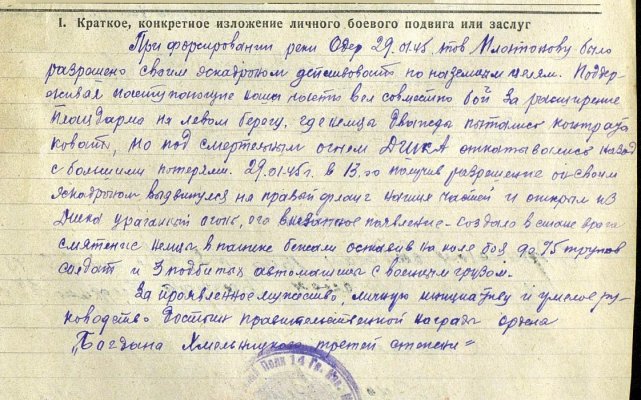 I. Краткое, конкретное изложение личного боевого подвига или заслуг
При форсировании реки Одер 29.01.45 тов было
разрешено своим эскадроном действовать по наземным целям. Поддер-
живая наступающие наши части вел совместно бой за расширение
плацдарма на левом берегу, где немцы дважды пытались контрата
ковать, но под смертельным огнем ДШКА откатывались назад
с большими потерями. 29.01.45г. в 13.00 получив разрешение он своим
эскадроном выдвинулся на правый фланг наших частей и открыл из
Дшка ураганный огонь, его внезапное появление - создало в стане врага
смятение немцы в панике бежали оставив на поле боя до 75 трупов
солдат и 3 подбитых автомашины с военным грузом.
За проявленное мужество, личную инициативу и умелое ру-
ководство Достоин правительственной награды ордена
„Богдана Хмельницкого третей степени"
Полк 14 Гв.